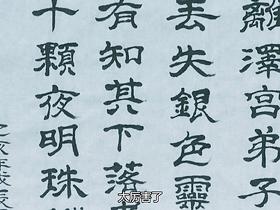 離澤宮弟子
丟失銀色靈
有知其下落
十顆夜明珠
太厉害了